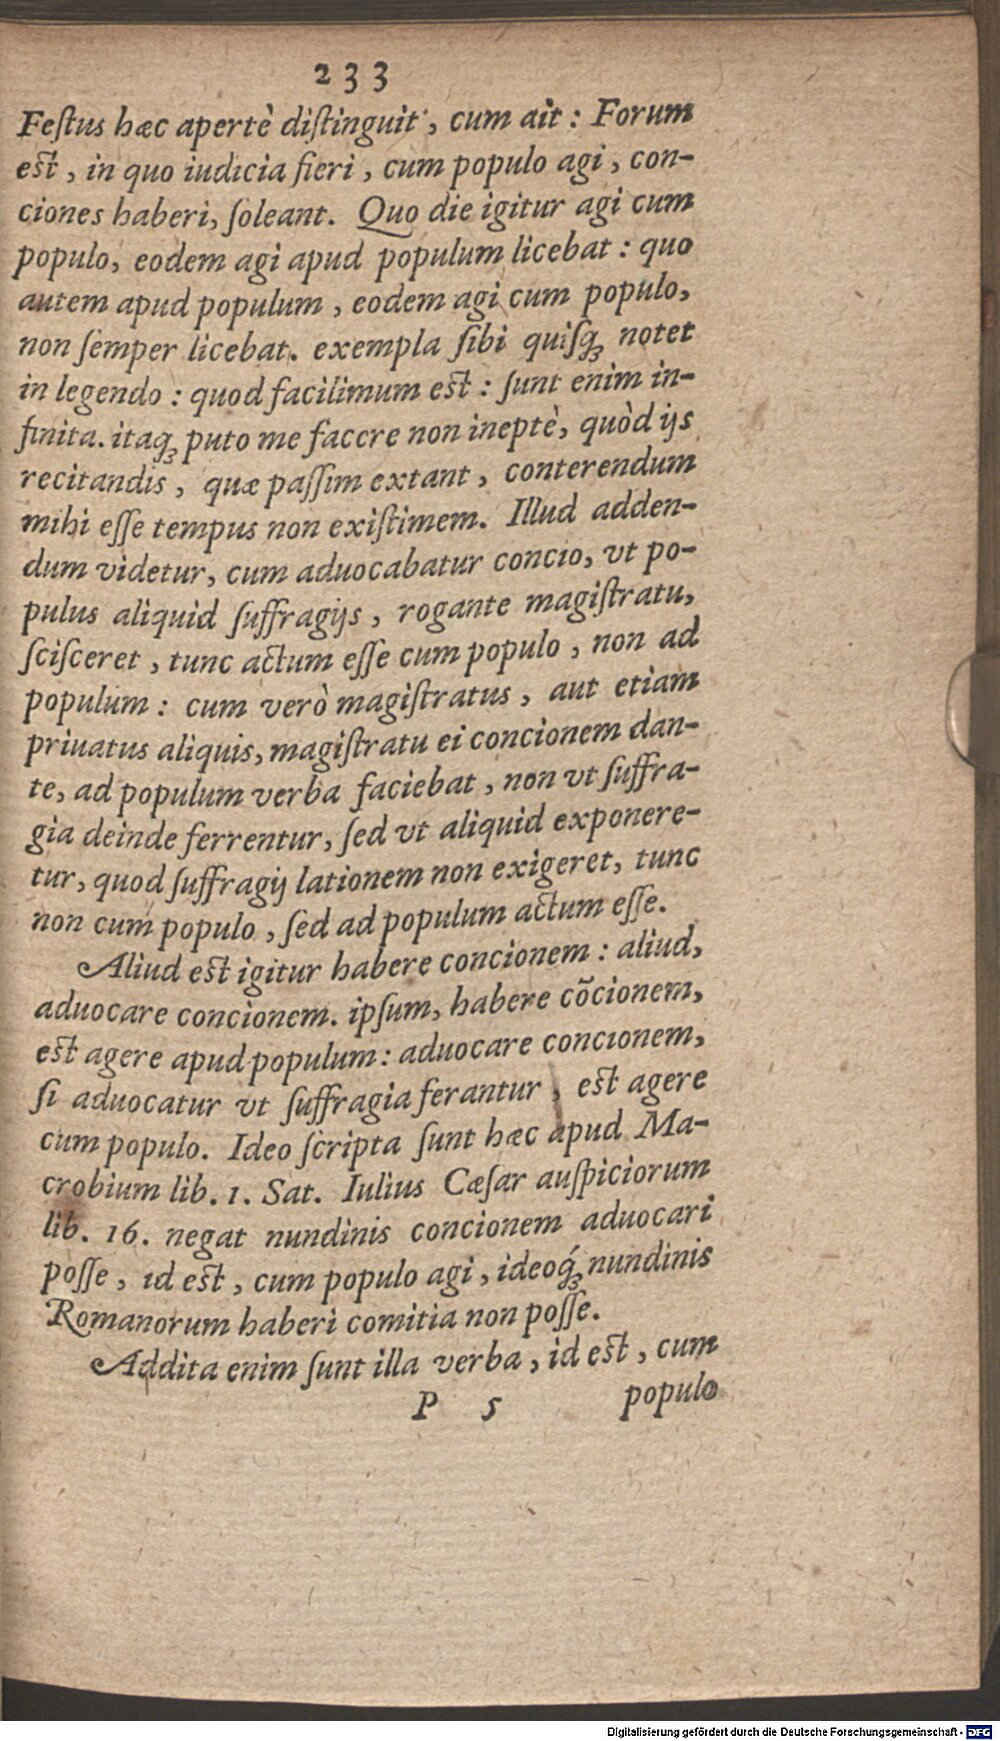 233
Feſtus hæc apertè diſtinguit, cum ait: Forum
eſt, in quo iudicia fieri, cum populo agi, con-
ciones haberi, ſoleant. Quo die igitur agi cum
populo, eodem agi apud populum licebat: quo
autem apud populum, eodem agi cum populo,
non ſemper licebat. exempla ſibi quiſq́ꝫ notet
in legendo: quod facilimum eſt: ſunt enim in-
finita. itaqꝫ puto me facere non ineptè, quòd ijs
recitandis, quæ paſſim extant, conterendum
mihi eſſe tempus non exiſtimem. Illud adden-
dum videtur, cum aduocabatur concio, vt po-
pulus aliquid ſuffragijs, rogante magiſtratu,
ſciſceret, tunc actum eſſe cum populo, non ad
populum: cum verò magiſtratus, aut etiam
priuatus aliquis, magiſtratu ei concionem dan-
te, ad populum verba faciebat, non vt ſuffra-
gia deinde ferrentur, ſed vt aliquid exponere-
tur, quod ſuffragij lationem non exigeret, tunc
non cum populo, ſed ad populum actum eſſe.
Aliud eſt igitur habere concionem: aliud,
aduocare concionem. ipſum, habere cõcionem,
eſt agere apud populum: aduocare concionem,
ſi aduocatur vt ſuffragia ferantur, eſt agere
cum populo. Ideo ſcripta ſunt hæc apud Ma-
crobium lib. 1. Sat. Iulius Cæſar auſpiciorum
lib. 16. negat nundinis concionem aduocari
poſſe, id eſt, cum populo agi, ideoq́ꝫ nundinis
Romanorum haberi comitia non poſſe.
Addita enim ſunt illa verba, id eſt, cum
P 5 populo
Digitalisierung gefördert durch die Deutsche Forschungsgemeinschaft - DFG